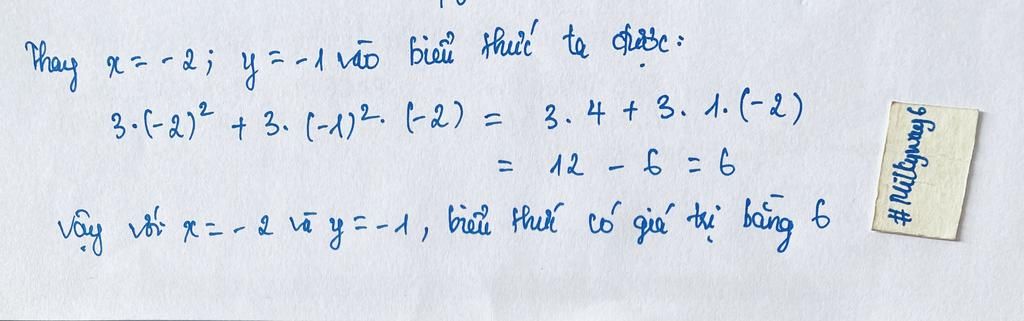 Thay x = -2; y = -1 vào biểu thức ta được:
3·(-2)² + 3·(-1)²·(-2) = 3.4 + 3.1.(-2)
= 12 - 6 = 6
Vậy với x = -2 và y = -1, biểu thức có giá trị bằng 6
#Milkyway6